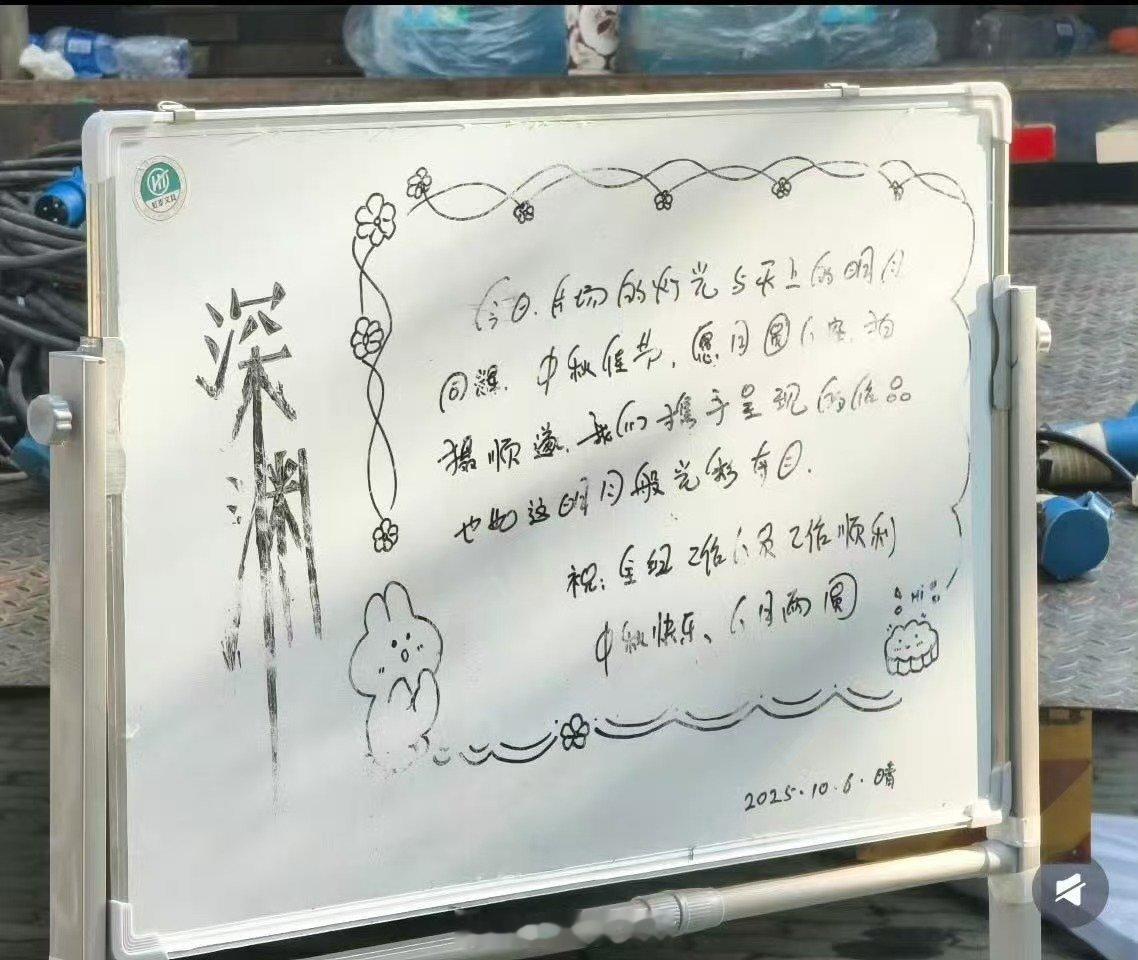 深渊
今日,片场的灯光与天上的明月
同耀,中秋佳节,愿月圆人安,拍
摄顺遂,我们携手呈现的作品
也如这明月般光彩夺目.
祝:全组工作人员工作顺利
中秋快乐、人月两圆
Hi
2025.10.6.晴